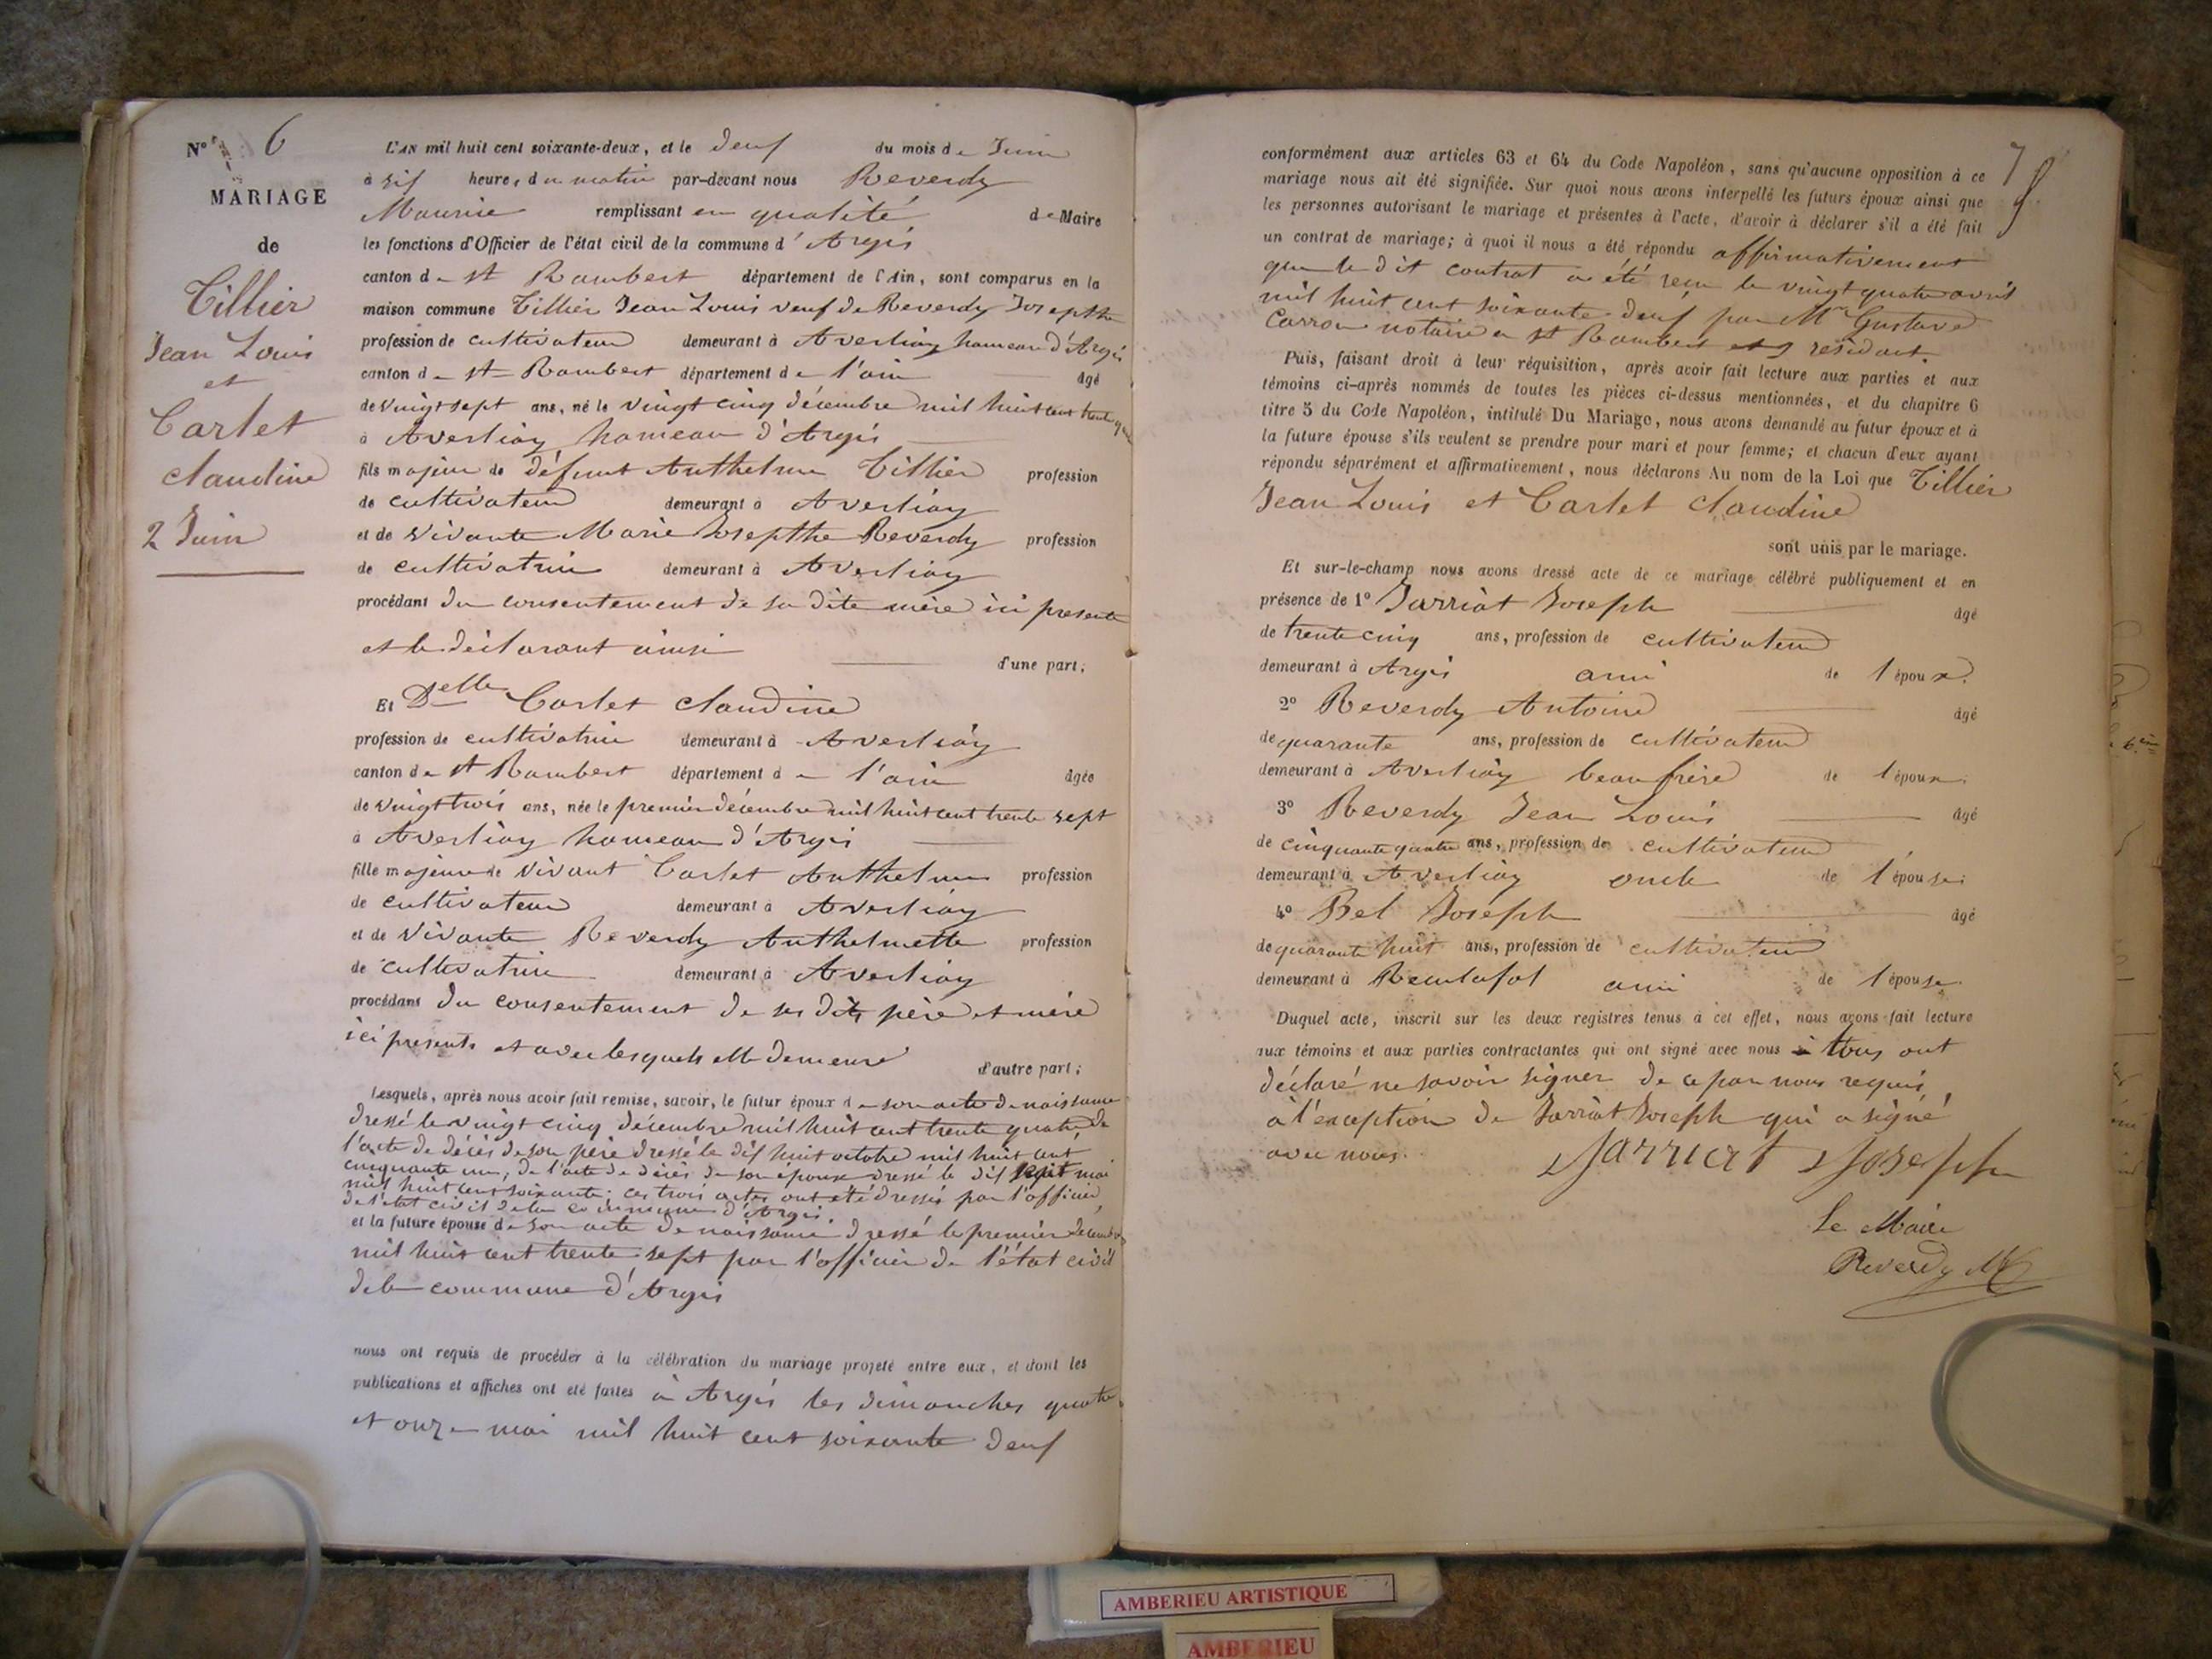 N° 6
MARIAGE
de
Tillier
Jean Louis
et
Carlet
claudine
2 Juin
L'AN mil huit cent soixante-deux, et le deux du mois de Juin
à six heures du matin par-devant nous Reverdy
Maurice remplissant en qualité de Maire
les fonctions d'Officier de l'état civil de la commune d'Argis
canton de st Rambert département de l'Ain, sont comparus en la
maison commune Tillier Jean Louis veuf de Reverdy Josepthe
profession de cultivateur demeurant à Averliay hameau d'Argis
canton de st Rambert département de l'ain âgé
de vingt sept ans, né le vingt cinq décembre mil huit cent trente
à Averliay hameau d'Argis
fils majeur de défunt Anthelme Tillier profession
de cultivateur demeurant à Averliay
et de vivante Marie Josepthe Reverdy profession
de cultivatrice demeurant à Averliay
procédant du consentement de sa dite mère ici presente
et le déclarant ainsi d'une part;
Et Delle Carlet claudine
profession de cultivatrice demeurant à Averliay
canton de st Rambert département de l'ain âgée
de vingt trois ans, née le premier décembre mil huit cent trente sept
à Averliay hameau d'Argis
fille majeure de vivant Carlet Anthelme profession
de cultivateur demeurant à Averliay
et de vivante Reverdy Anthelmette profession
de cultivatrice demeurant à Averliay
procédant du consentement de ses dits père et mère
ici presents et avec lesquels elle demeure d'autre part;
Lesquels, après nous avoir fait remise, savoir, le futur époux de son acte de naissance
dressé le vingt cinq décembre mil huit cent trente quatre, de
l'acte de décès de son père dressé le dix huit octobre mil huit cent
cinquante un, de l'acte de décès de son épouse dressé le dix sept mai
mil huit cent soixante; ces trois actes ont été dressés par l'officier
de l'état civil de la commune d'Argis.
et la future épouse de son acte de naissance dressé le premier décembre
mil huit cent trente sept par l'officier de l'état civil
de la commune d'Argis
nous ont requis de procéder à la célébration du mariage projeté entre eux, et dont les
publications et affiches ont été faites à Argis les dimanches quatre
et onze mai mil huit cent soixante deux
conformément aux articles 63 et 64 du Code Napoléon, sans qu'aucune opposition à ce
mariage nous ait été signifiée. Sur quoi nous avons interpellé les futurs époux ainsi que
les personnes autorisant le mariage et présentes à l'acte, d'avoir à déclarer s'il a été fait
un contrat de mariage; à quoi il nous a été répondu affirmativement
que le dit contrat a été reçu le vingt quatre avril
mil huit cent soixante deux par Mre Gustave
Carron notaire a st Rambert et y résidant.
Puis, faisant droit à leur réquisition, après avoir fait lecture aux parties et aux
témoins ci-après nommés de toutes les pièces ci-dessus mentionnées, et du chapitre 6
titre 5 du Code Napoléon, intitulé Du Mariage, nous avons demandé au futur époux et à
la future épouse s'ils veulent se prendre pour mari et pour femme; et chacun d'eux ayant
répondu séparément et affirmativement, nous déclarons Au nom de la Loi que Tillier
Jean Louis et Carlet claudine
sont unis par le mariage.
Et sur-le-champ nous avons dressé acte de ce mariage célébré publiquement et en
présence de 1° Jarriat Joseph âgé
de trente cinq ans, profession de cultivateur
demeurant à Argis ami de l'époux.
2° Reverdy Antoine âgé
de quarante ans, profession de cultivateur
demeurant à Averliay beau frère de l'époux.
3° Reverdy Jean Louis âgé
de cinquante quatre ans, profession de cultivateur
demeurant à Averliay oncle de l'épouse;
4° Bel Joseph âgé
de quarante huit ans, profession de cultivateur
demeurant à Reculafol ami de l'épouse.
Duquel acte, inscrit sur les deux registres tenus à cet effet, nous avons fait lecture
aux témoins et aux parties contractantes qui ont signé avec nous tous ont
déclaré ne savoir signer de ce par nous requis
à l'exception de Jarriat Joseph qui a signé
avec nous.
Jarriat Joseph
Le Maire
Reverdy M
AMBERIEU ARTISTIQUE
AMBERIEU